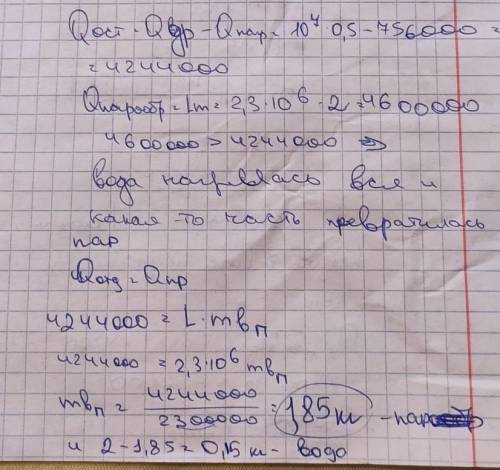 Qост = Qдр - Qнаг = 10⁷ · 0,5 - 756000 =
= 4244000
Qпарообр = Lm = 2,3 · 10⁶ · 2 = 4600000
4600000 > 4244000 ⇒
вода нагрелась вся и
какая-то часть превратилась
пар
Qотд = Qпр
4244000 = L · mвп
4244000 = 2,3 · 10⁶ mвп
mвп = 4244000 / 2300000 = 1,85 кг - пар
и 2 - 1,85 = 0,15 кг - вода